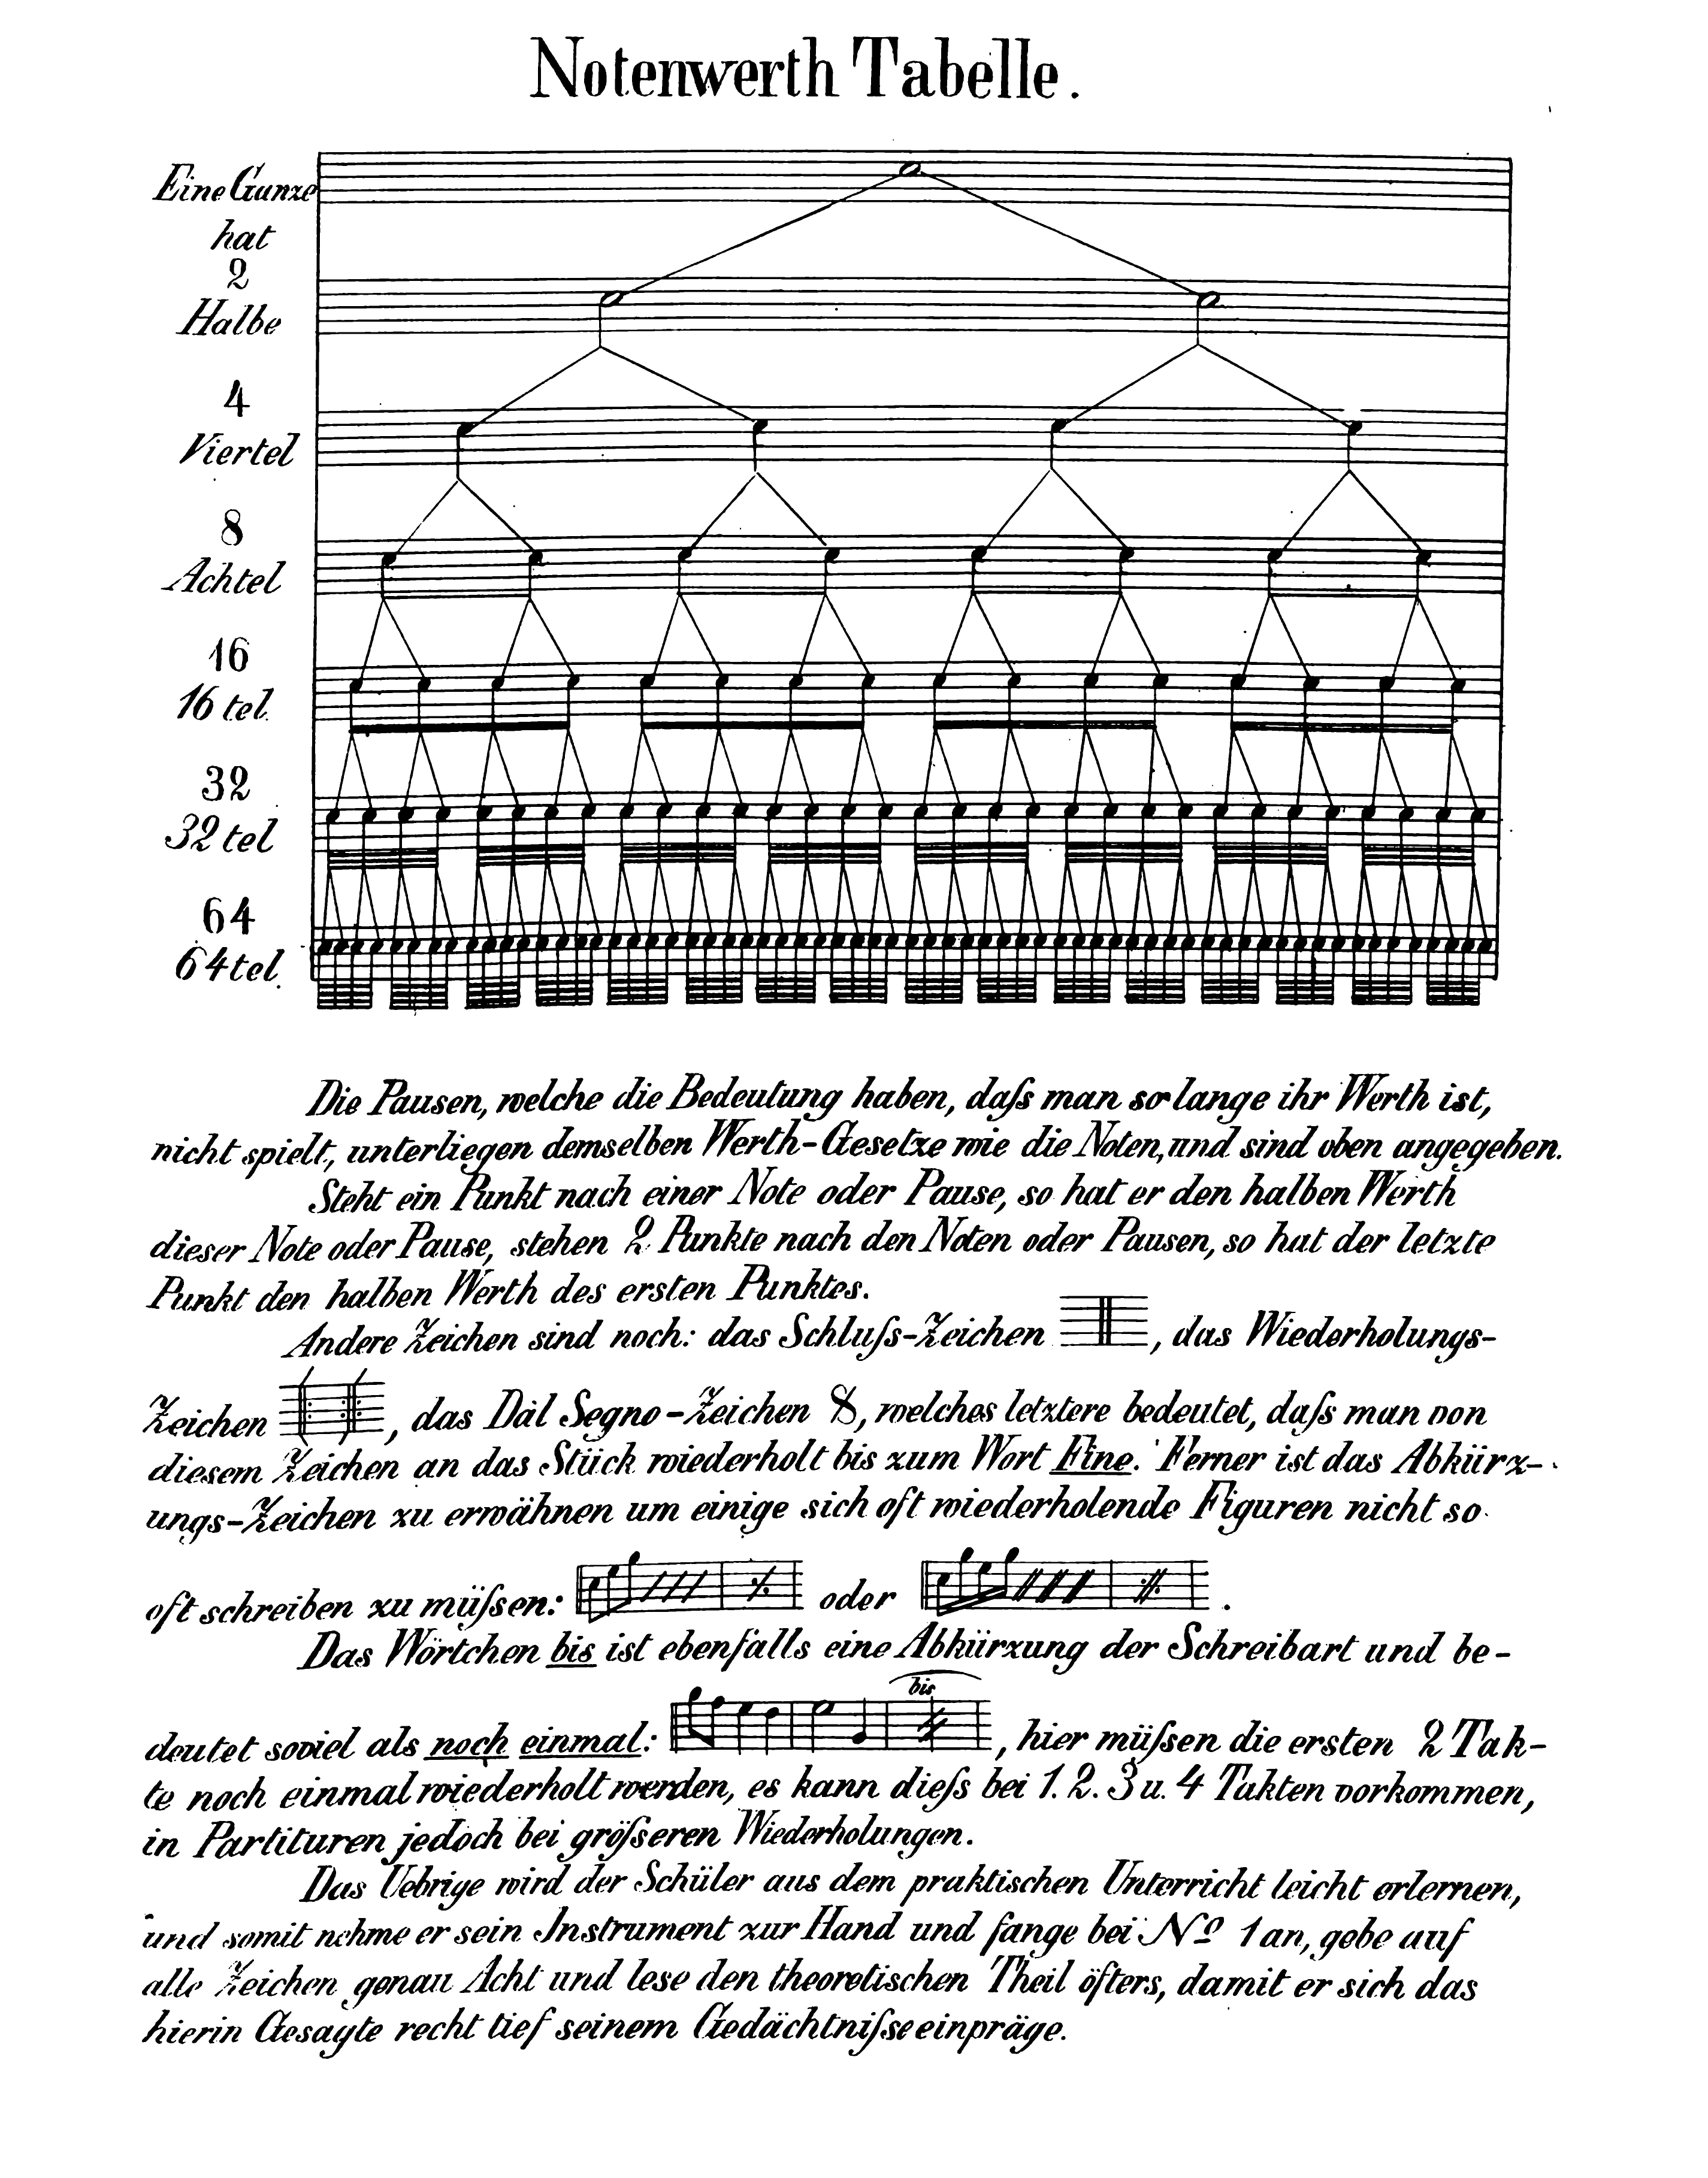 Notenwerth Tabelle.
Eine Ganze
hat
2
Halbe
4
Viertel
8
Achtel
16
16 tel.
32
32 tel
64
64 tel.
Die Pausen, welche die Bedeutung haben, daſs man so lange ihr Werth ist,
nicht spielt, unterliegen demselben Werth-Gesetze wie die Noten, und sind oben angegeben.
Steht ein Punkt nach einer Note oder Pause, so hat er den halben Werth
dieser Note oder Pause, stehen 2 Punkte nach den Noten oder Pausen, so hat der letzte
Punkt den halben Werth des ersten Punktes.
Andere Zeichen sind noch: das Schluſs-Zeichen , das Wiederholungs-
Zeichen , das Dal Segno-Zeichen , welches letztere bedeutet, daſs man von
diesem Zeichen an das Stück wiederholt bis zum Wort Fine. Ferner ist das Abkürz-
ungs-Zeichen zu erwähnen um einige sich oft wiederholende Figuren nicht so
oft schreiben zu müſsen: oder .
Das Wörtchen bis ist ebenfalls eine Abkürzung der Schreibart und be-
bis
deutet soviel als noch einmal: , hier müſsen die ersten 2 Tak-
te noch einmal wiederholt werden, es kann dieſs bei 1. 2. 3 u. 4 Takten vorkommen,
in Partituren jedoch bei gröſseren Wiederholungen.
Das Uebrige wird der Schüler aus dem praktischen Unterricht leicht erlernen,
und somit nehme er sein Instrument zur Hand und fange bei No 1 an, gebe auf
alle Zeichen genau Acht und lese den theoretischen Theil öfters, damit er sich das
hierin Gesagte recht tief seinem Gedächtniſse einpräge.